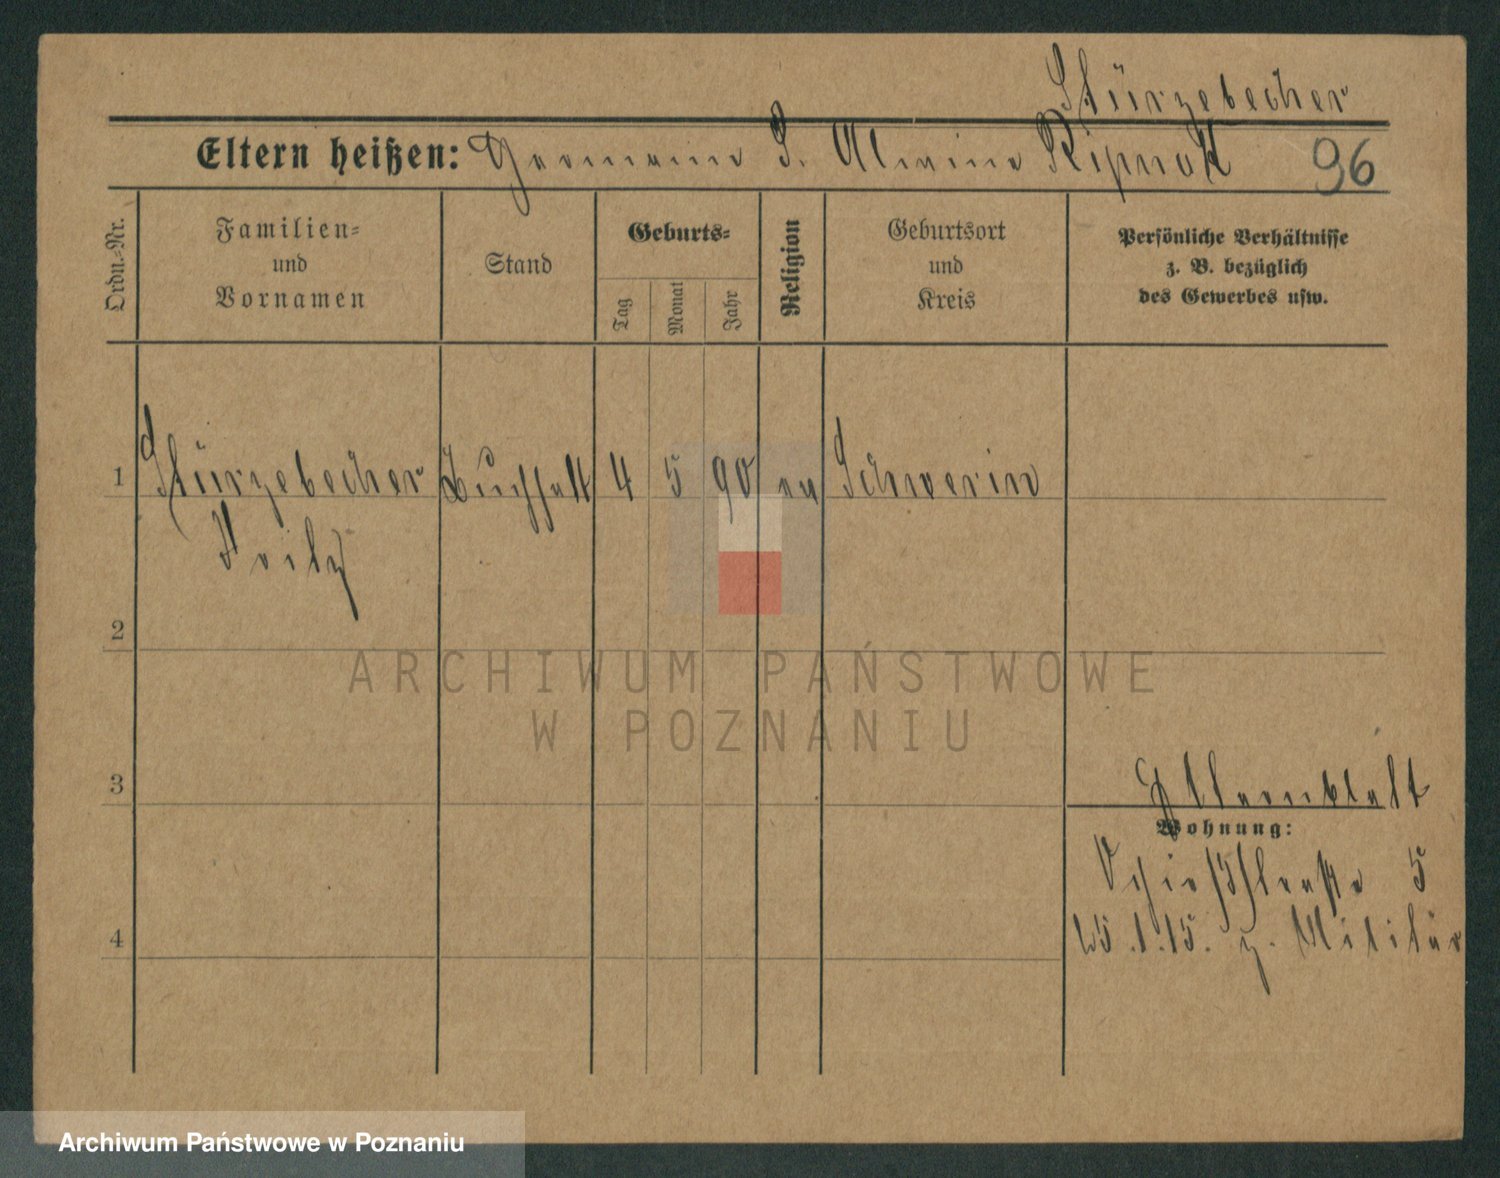 Stürzebecher
Eltern heißen: Hermann S. Alwine Ripnak
96
Ordn.-Nr.
Familien- und Vornamen
Stand
Geburts-
Tag
Monat
Jahr
Religion
Geburtsort und Kreis
Persönliche Verhältnisse
z. B. bezüglich
des Gewerbes usw.
1 Stürzebecher Buchhalt 4 5 90 ev Schwerin
Fritz
2
3
Elternblatt
Wohnung:
5
4
15.1.15. z. Militär
ARCHIWUM PAŃSTWOWE
W POZNANIU
Archiwum Państwowe w Poznaniu